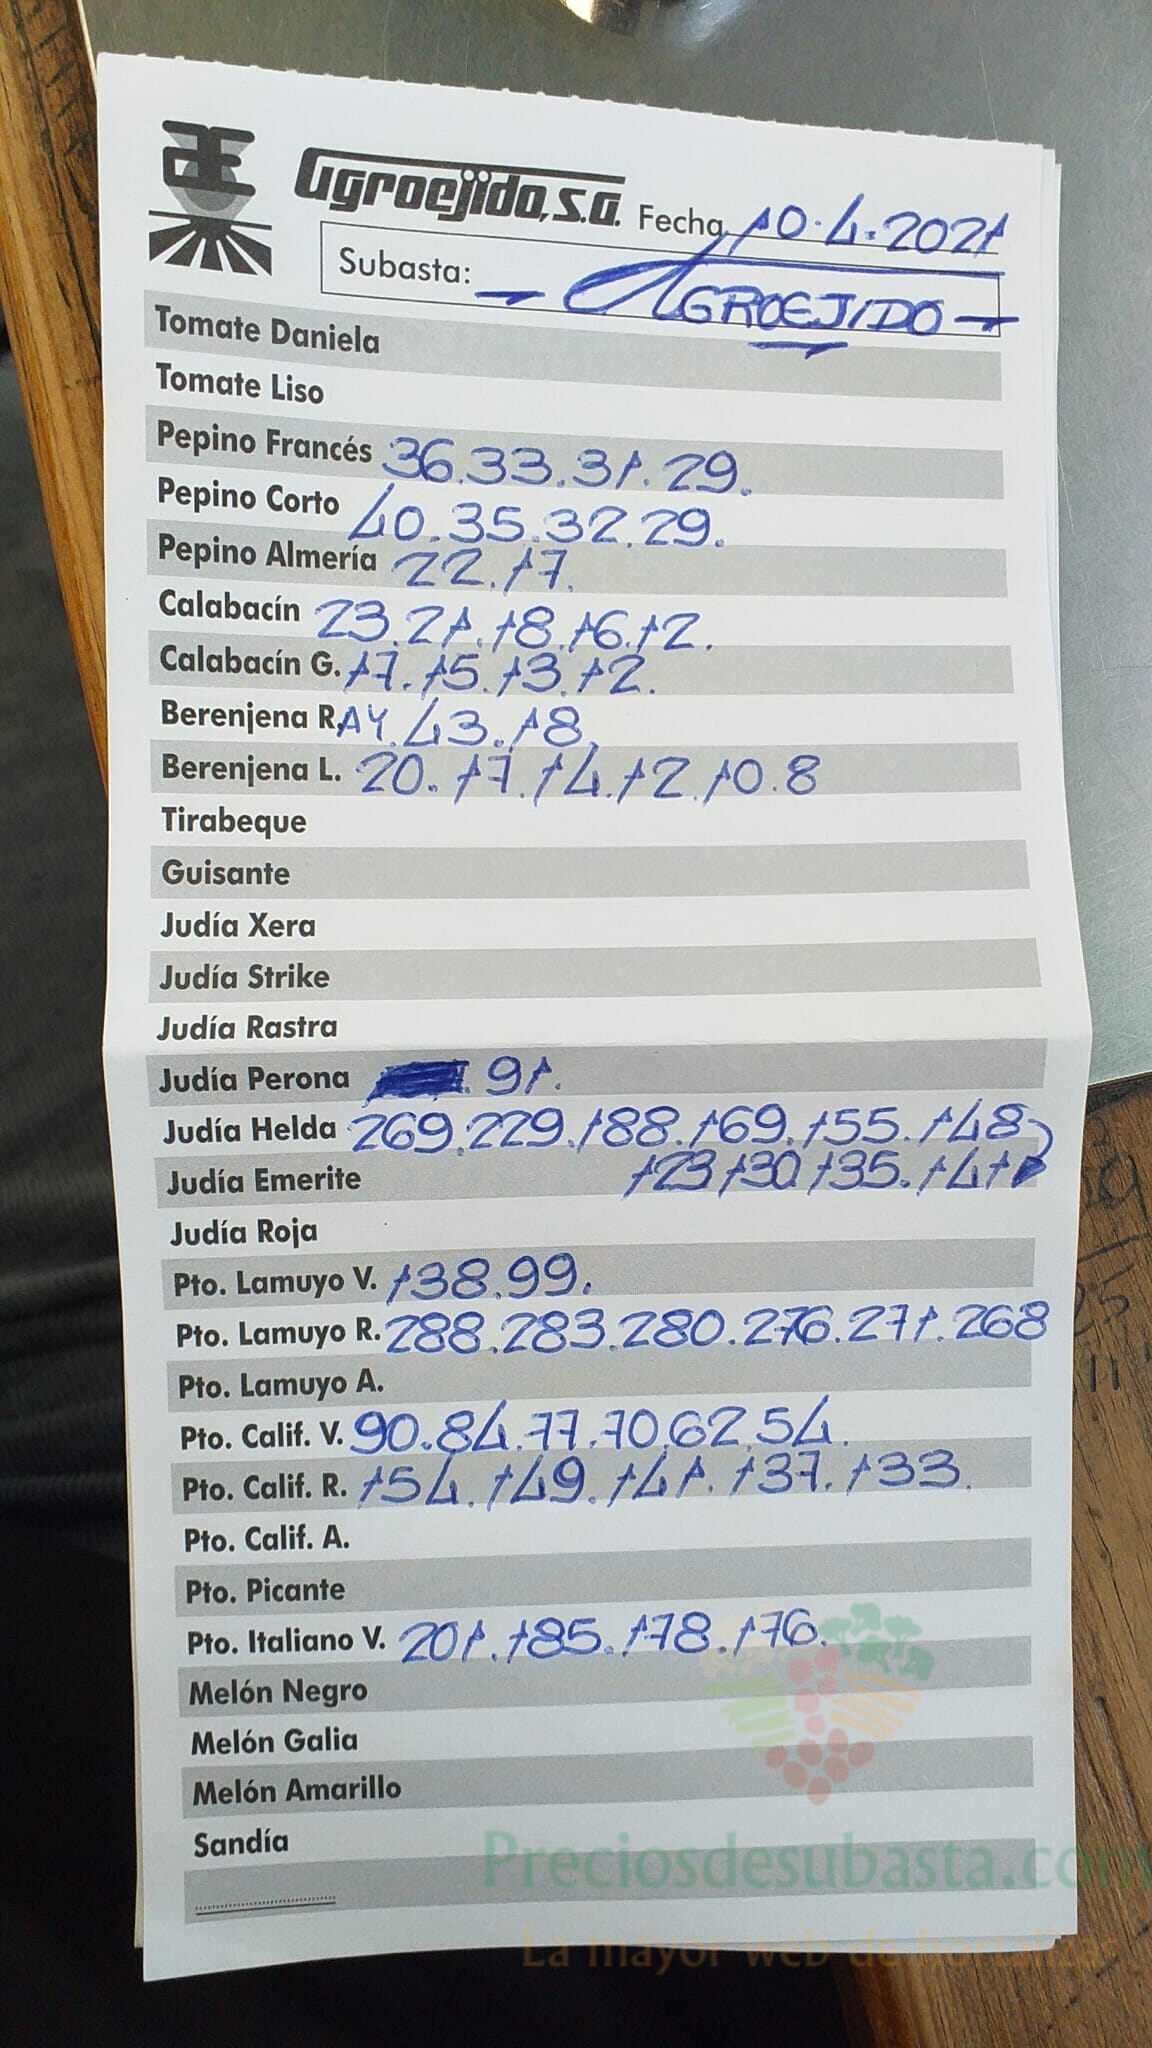 agroejido, s.a. Fecha 10.4.2021
Subasta: - AGROEJIDO -
Tomate Daniela
Tomate Liso
Pepino Francés 36.33.31.29.
Pepino Corto 40.35.32.29.
Pepino Almería 22.17.
Calabacín 23.21.18.16.12.
Calabacín G. 17.15.13.12.
Berenjena R. AY. 43.18.
Berenjena L. 20.17.14.12.10.8
Tirabeque
Guisante
Judía Xera
Judía Strike
Judía Rastra
Judía Perona 91.
Judía Helda 269.229.188.169.155.148
Judía Emerite 123 130 135.141
Judía Roja
Pto. Lamuyo V. 138.99.
Pto. Lamuyo R. 288.283.280.276.271.268
Pto. Lamuyo A.
Pto. Calif. V. 90.84.77.70.62.54.
Pto. Calif. R. 154.149.141.137.133.
Pto. Calif. A.
Pto. Picante
Pto. Italiano V. 201.185.178.176.
Melón Negro
Melón Galia
Melón Amarillo
Sandía
Preciosdesubasta.com
La mayor web de